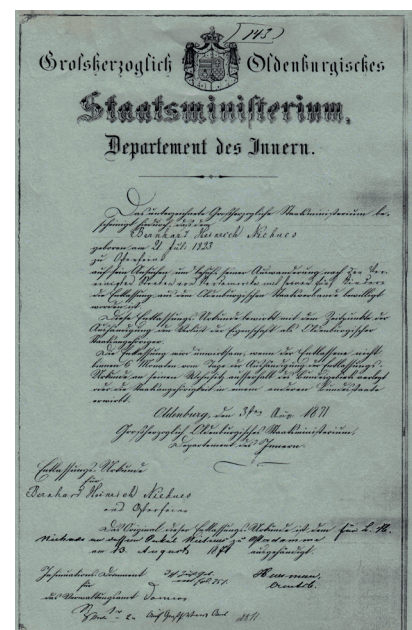 143
Großherzoglich Oldenburgisches
Staatsministerium.
Departement des Innern.
Das unterzeichnete Großherzogliche Staatsministerium be-
scheinigt hierdurch, daß dem
Bernhard Heinrich Niehues
geboren am 21 Juli 1823
zu Osterfeine
auf sein Ansuchen im Behufe seiner Auswanderung nach den Ver-
einigten Staaten von Nordamerika
die Entlassung aus dem Oldenburgischen Staatsverbande bewilligt
worden ist.
Diese Entlassungs-Urkunde bewirkt mit dem Zeitpunkte der
Aushändigung den Verlust der Eigenschaft als Oldenburgischer
Staatsangehöriger.
Die Entlassung wird unwirksam, wenn der Entlassene nicht
binnen 6 Monaten vom Tage der Aushändigung der Entlassungs-
Urkunde seinen Wohnsitz außerhalb des Bundesgebiets verlegt
oder die Staatsangehörigkeit in einem anderen Bundesstaate
erwirbt.
Oldenburg, den 3ten Aug. 1871
Großherzoglich Oldenburgisches Staatsministerium,
Departement des Innern.
Entlassungs-Urkunde
für
Bernhard Heinrich Niehues
aus Osterfeine
Das Original dieser Entlassungs-Urkunde ist dem für B. H.
Niehues
am 13. August 1871 ausgehändigt.
Insinuations-Document
für
das Verwaltungsamt Damme